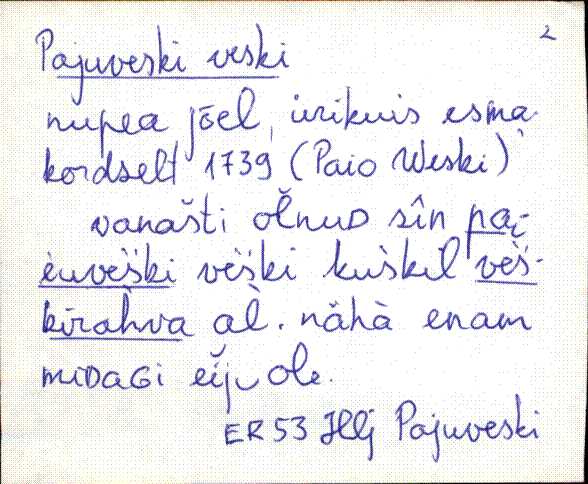 2
Pajuveski veski
nupea jōel, ürikuis esma-
kordselt 1739 (Paio Weski)
vanašti oľnuD sîn pai-
èuvèški vèški kuškil vèš-
kīrahva al. nähà enam
miDaGi eij ole.
ER 53 Hlj Pajuveski